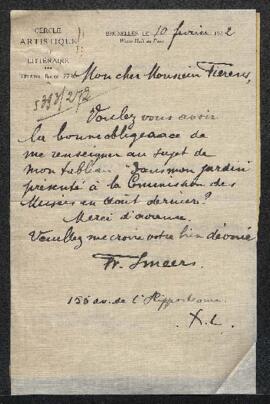 CERCLE
ARTISTIQUE
&
LITTÉRAIRE
BRUXELLES LE 10 février 1932
Mon cher Monsieur Fierens,
5393/2/72
Voulez vous avoir
la bonne obligeance de
me renseigner au sujet de
mon tableau "Dans mon jardin"
présenté à la Commission des
Musées en août dernier?
Merci d'avance.
Veuillez me croire votre bien dévoué
Fr. Smeers.
156 av. de l'Hippodrome
X.L.